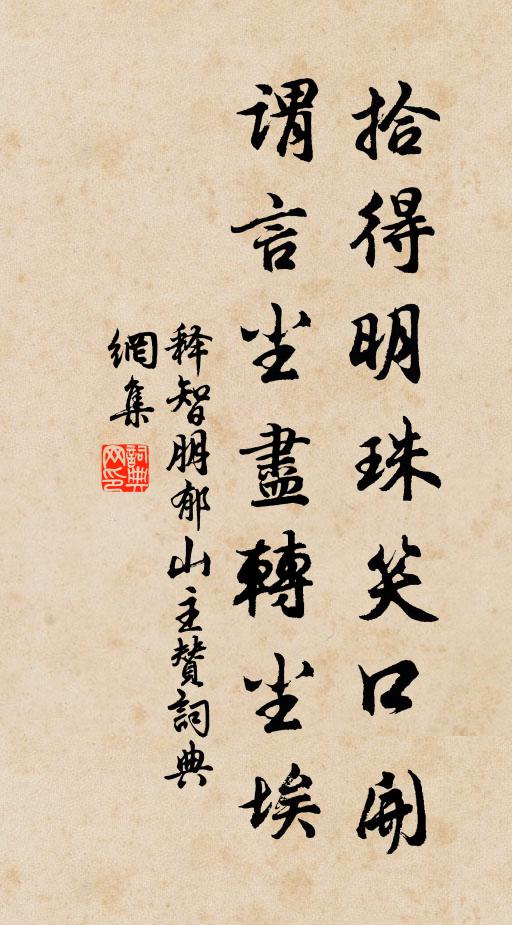 拾得明珠笑口開
謂言尘盡轉尘埃
释智朋郁山主贊詞典
網集
詞典
网印